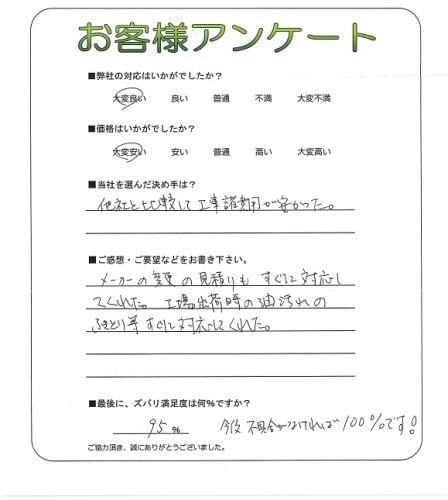 お客様アンケート
■弊社の対応はいかがでしたか？
大変良い 良い 普通 不満 大変不満
■価格はいかがでしたか？
大変安い 安い 普通 高い 大変高い
■当社を選んだ決め手は？
他社と比較して工事諸費用が安かった。
■ご感想・ご要望などをお書き下さい。
メーカーの変更の見積りもすぐに対応し
てくれた。工場出荷時の油汚れの
ふきとり等すぐに対応してくれた。
■最後に、ズバリ満足度は何%ですか？
95 % 今後不具合がなければ100%です！
ご協力頂き、誠にありがとうございました。